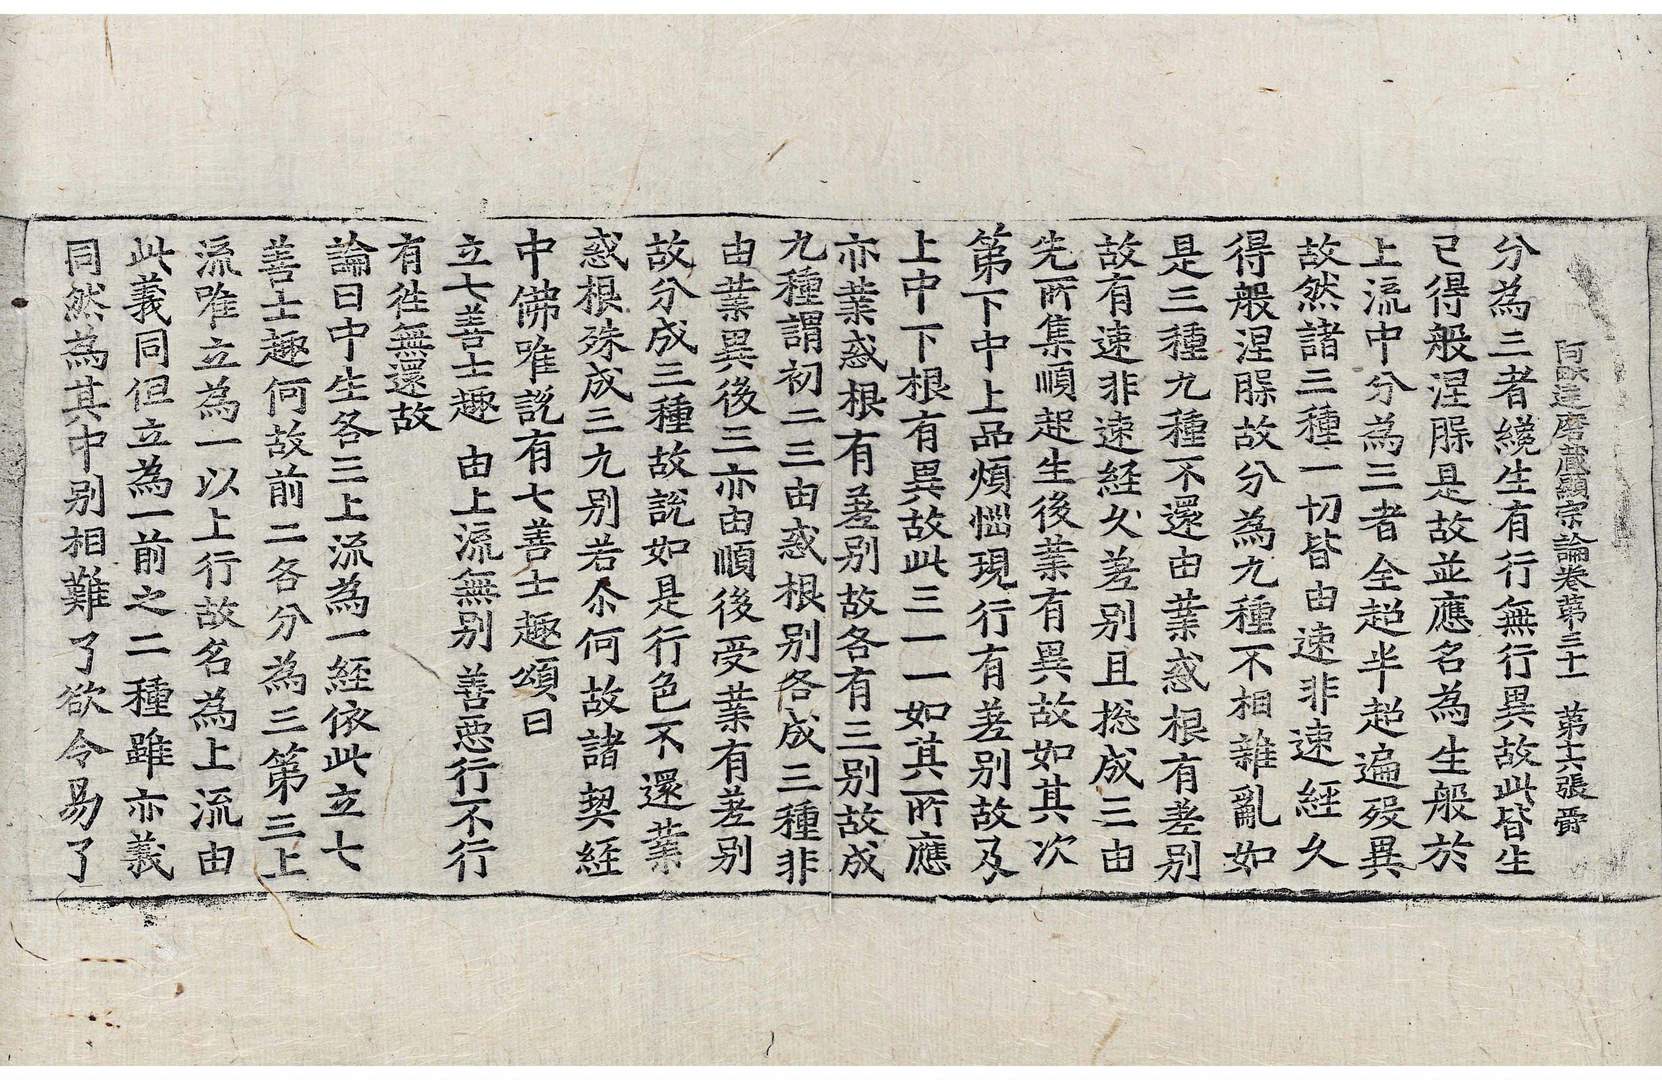 阿毗達磨藏顯宗論卷第三十一　第十六張　爵
分為三者纔生有行無行異故此皆生
已得般涅脲是故並應名為生般於
上流中分為三者全超半超遍殁異
故然諸三種一切皆由速非速經久
得般涅脲故分為九種不相雜亂如
是三種九種不還由業惑根有差别
故有速非速經久差别且揔成三由
先所集順起生後業有異故如其次
第下中上品煩惱現行有差别故及
上中下根有異故此三一一如其所應
亦業惑根有差别故各有三别故成
九種謂初二三由惑根别各成三種非
由業異後三亦由順後受業有差别
故分成三種故說如是行色不還業
惑根殊成三九别若尒何故諸契經
中佛唯說有七善士趣頌曰
立七善士趣　由上流無别　善惡行不行
有往無還故
論曰中生各三上流為一經依此立七
善士趣何故前二各分為三第三上
流唯立為一以上行故名為上流由
此義同但立為一前之二種雖亦義
同然為其中别相難了欲令易了